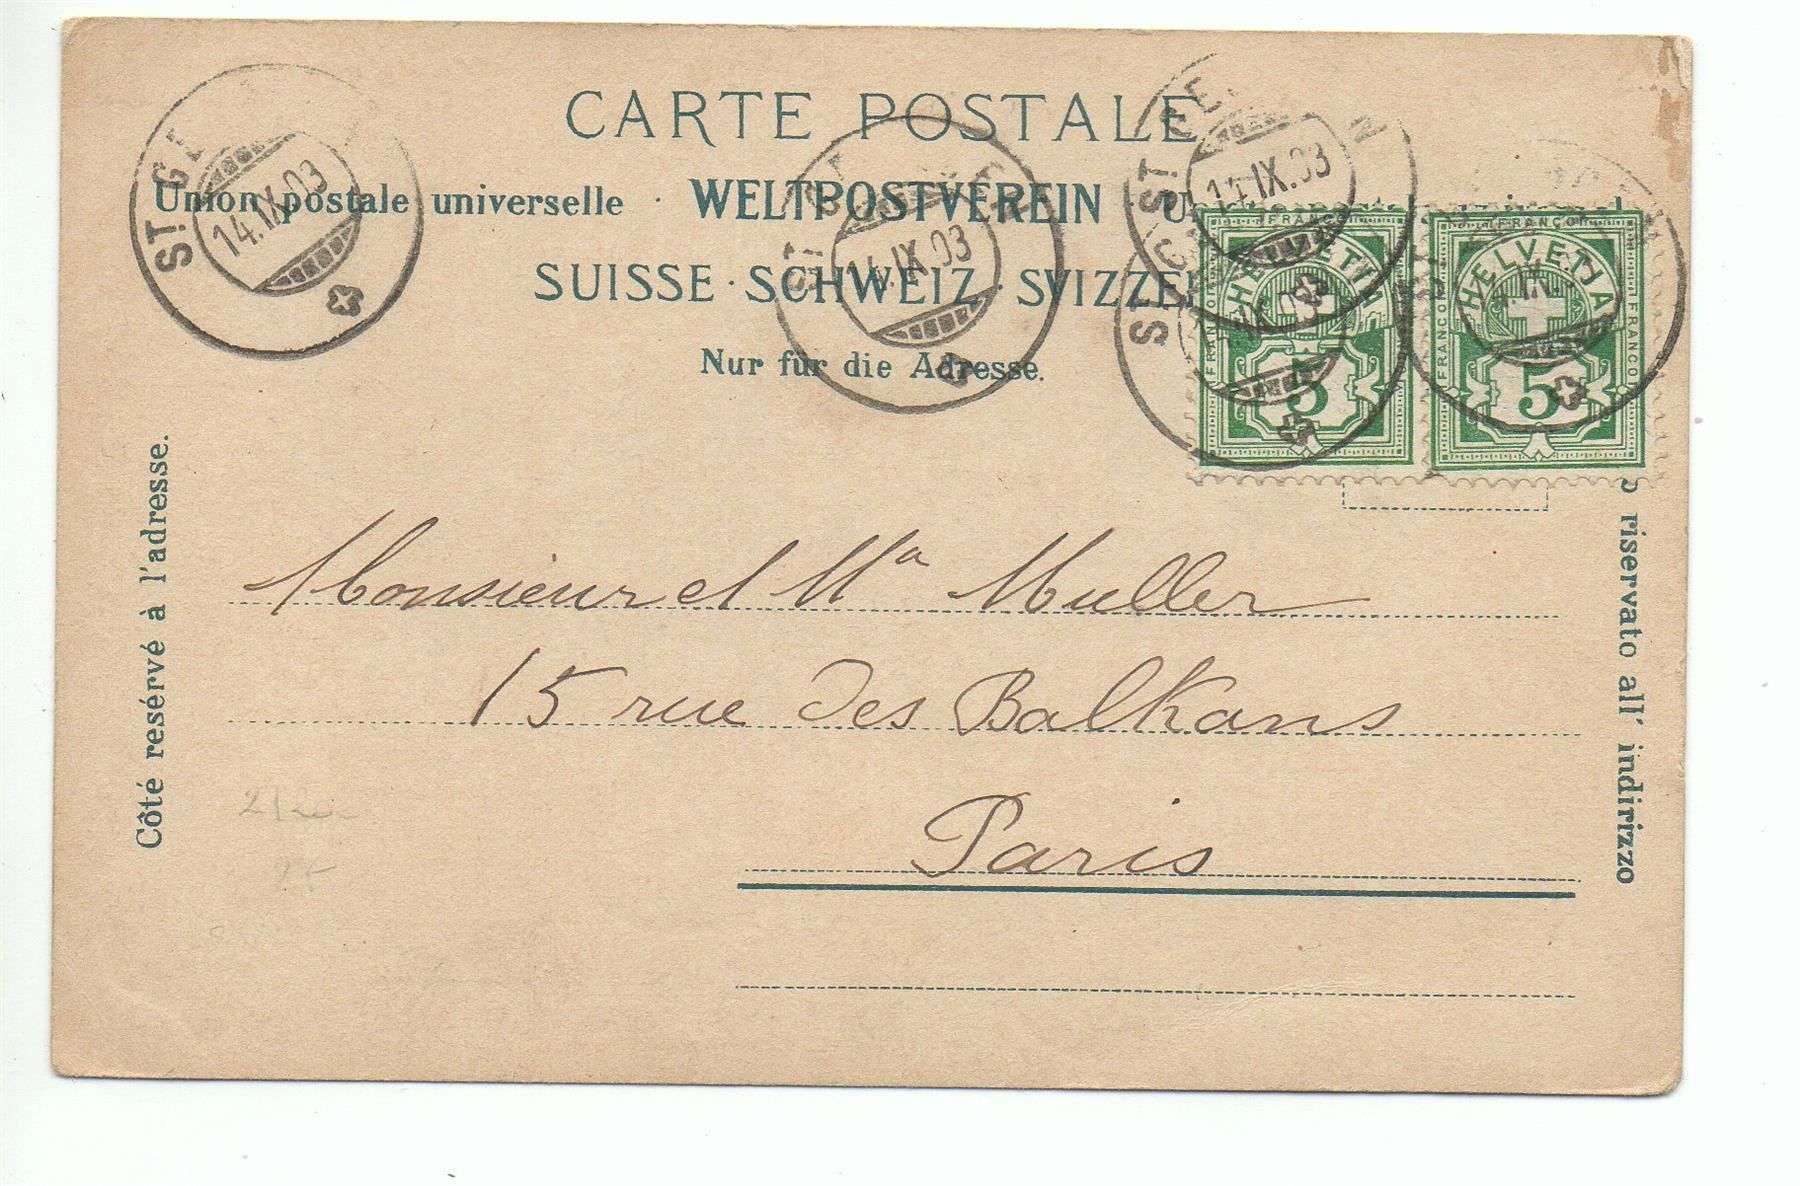 CARTE POSTALE
Union postale universelle · WELTPOSTVEREIN ·
SUISSE · SCHWEIZ ·
Nur für die Adresse.
ST.
14.IX.03
14.IX.03
ST.
14.IX.03
ST.
FRANCO
HELVETIA
5
FRANCO
HELVETIA
FRANCO
FRANCO
5
Côté resérvé à l'adresse.
riservato all' indirizzo
Monsieur et Ma Muller
15 rue des Balkans
Paris